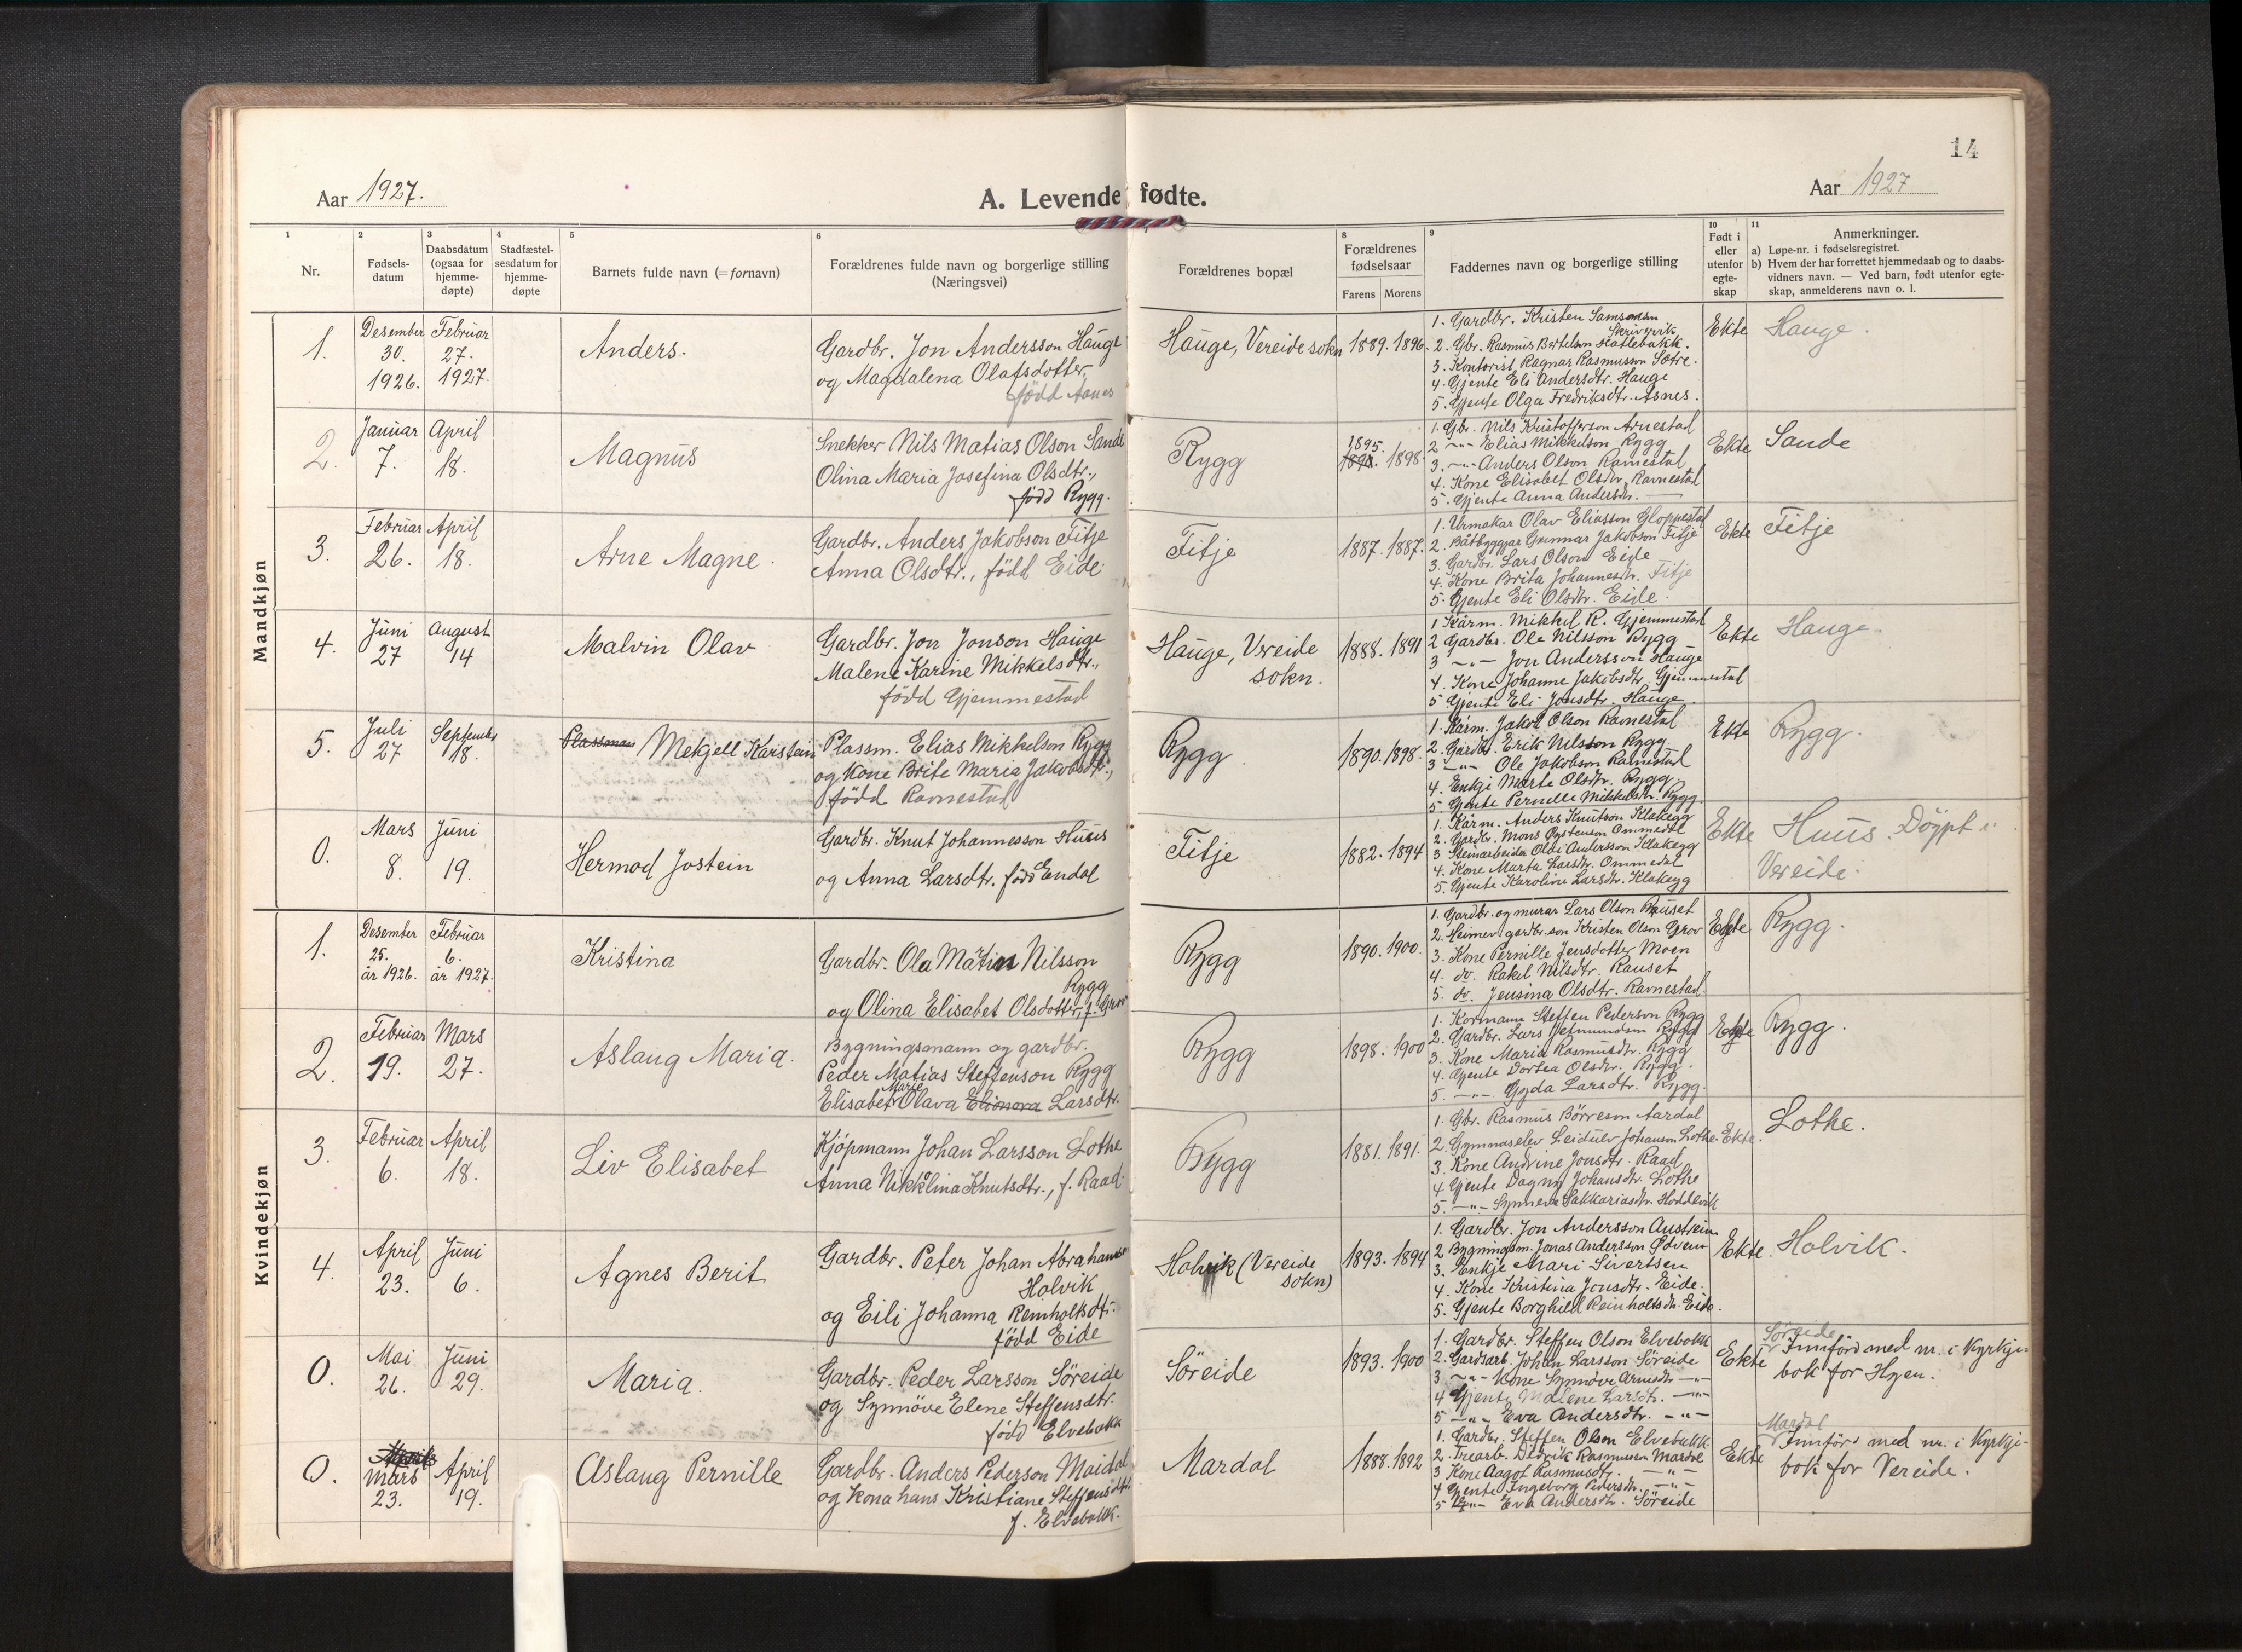 14
Aar 1927.
A. Levende fødte.
Aar 1927
1
2
3
4
5
6
8
9
10
11
Nr.
Fødsels-
datum
Daabsdatum
(ogsaa for
hjemme-
døpte)
Stadfæstel-
sesdatum for
hjemme-
døpte
Barnets fulde navn (= fornavn)
Forældrenes fulde navn og borgerlige stilling
(Næringsvei)
Forældrenes bopæl
Forældrenes
fødselsaar
Farens
Morens
Faddernes navn og borgerlige stilling
Født i
eller
utenfor
egte-
skap
Anmerkninger.
a) Løpe-nr. i fødselsregistret.
b) Hvem der har forrettet hjemmedaab og to daabs-
vidners navn. — Ved barn, født utenfor egte-
skap, anmelderens navn o. l.
Mandkjøn
1.
Desember
30.
1926.
Februar
27.
1927.
Anders.
Gardbr. Jon Andersson Hauge
og Magdalena Olafsdotter,
född Aanes
Hauge, Vereide sokn
1889. 1896.
1. Gardbr. Kristen Samsonsn
Skrivervik
2. Gbr. Rasmus Bertelson Hatlebakk.
3. Kontorist Ragnar Rasmusson Sætre.
4. Gjente Eli Andersdtr. Hauge
5. Gjente Olga Fredriksdtr. Asnes.
Ekte
Hauge.
2.
Januar
7.
April
18.
Magnus
Snekker Nils Matias Olson Sande
Olina Maria Josefina Olsdtr.,
född Rygg.
Rygg
1895.
1898.
1. Gbr. Nils Kristofferson Arnestad
2 -"- Elias Mikkelson Rygg
3. -"- Anders Olson Ravnestad
4. Kone Elisabet Olsdtr. Ravnestad
5. Gjente Anna Andersdtr. —
Ekte
Sande
3.
Februar
26.
April
18.
Arne Magne.
Gardbr. Anders Jakobson Fitje
Anna Olsdtr., född Eide
Fitje
1887. 1887.
1. Urmakar Olav Eliasson Gloppestad
2. Båtbyggjar Gunnar Jakobson Fitje
3. Gardbr. Lars Olson Eide
4. Kone Brita Johannesdtr. Fitje
5. Gjente Eli Olsdtr. Eide.
Ekte
Fitje
4.
Juni
27
August
14
Malvin Olav
Gardbr. Jon Jonson Hauge
Malene Karine Mikkelsdtr.,
född Gjemmestad
Hauge, Vereide
sokn.
1888. 1891
1 Kårm. Mikkel R. Gjemmestad
2 Gardbr. Ole Nilsson Rygg
3 -"- Jon Andersson Hauge
4. Kone Johanne Jakobsdtr. Gjemmestad
5 Gjente Eli Jonsdtr. Hauge
Ekte
Hauge.
5.
Juli
27
September
18.
Plassman Mekjell Karstein
Plassm. Elias Mikkelson Rygg
og Kone Brite Maria Jakobsdtr.,
född Ravnestad
Rygg.
1890. 1898.
1. Kårm. Jakob Olson Ravnestad
2. Gardbr. Erik Nilsson Rygg
3 -"- Ole Jakobson Ravnestad
4. Enkje Marte Olsdtr. Rygg
5 Gjente Pernille Mikkelsdtr. Rygg.
Ekte
Rygg.
0.
Mars
8.
Juni
19.
Hermod Jostein
Gardbr. Knut Johannesson Huus
og Anna Larsdtr. född Endal
Fitje
1882. 1894
1. Kårm. Anders Knutson Klakegg
2. Gardbr. Mons Øystenson Ommedal
3 Steinarbeider Olai Andersson Klakegg
4. Kone Marta Larsdtr. Ommedal
5. Gjente Karoline Larsdtr. Klakegg
Ekte
Huus. Döypt i
Vereide.
Kvindekjøn
1.
Desember
25.
år 1926.
Februar
6.
år 1927.
Kristina
Gardbr. Ola Matin Nilsson
Rygg
og Olina Elisabet Olsdotter, f. Grov
Rygg
1890. 1900.
1. Gardbr. og murar Lars Olson Rauset
2. Heimev. gardbr.son Kristen Olson Grov
3. Kone Pernille Jensdotter Moen
4. do. Rakel Nilsdtr. Rauset
5. do. Jensina Olsdtr. Ravnestad.
Ekte
Rygg.
2.
Februar
19.
Mars
27.
Aslaug Maria.
Bygningsmann og gardbr.
Peder Matias Steffenson Rygg
Marie
Elisabet Olava Elionora Larsdtr.
Rygg
1898. 1900
1. Kormann Steffen Pederson Rygg
2. Gardbr. Lars Jetmundson Rygg
3. Kone Maria Rasmusdtr. Rygg
4. Gjente Dortea Olsdtr. Rygg.
5. -"- Gyda Larsdtr. Rygg.
Ekte
Rygg.
3.
Februar
6.
April
18.
Liv Elisabet
Kjöpmann Johan Larsson Lothe
Anna Nikkolina Knutsdtr., f. Raad.
Rygg
1881. 1891.
1. Gbr. Rasmus Börreson Aardal
2. Gymnaselev Leidulv Johanson Lothe.
3. Kone Andrine Jonsdtr. Raad
4 Gjente Dagny Johansdtr. Lothe
5. -"- Synneve Sakkariasdtr. Hoddevik
Ekte.
Lothe.
4.
April
23.
Juni
6.
Agnes Berit
Gardbr. Peter Johan Abrahamson
Holvik
og Eili Johanna Reinholtsdtr.
född Eide
Holvik (Vereide
sokn)
1893. 1894
1. Gardbr. Jon Andersson Austreim
2 Bygningsm. Jonas Andersson Ødvein
3. Enkje Mari Sivertsen
4. Kone Kristina Jonsdtr. Eide.
5. Gjente Borghild Reinholtsdtr. Eide.
Ekte.
Holvik.
0.
Mai
26.
Juni
29.
Maria.
Gardbr. Peder Larsson Söreide
og Synnöve Elene Steffensdtr.
född Elvebakk
Söreide
1893. 1900
1. Gardbr. Steffen Olson Elvebakk
2. Gardsarb. Johan Larsson Söreide
3 -"- Kone Synnöve Arnesdtr -"-
4 Gjente Malene Larsdtr. -"-
5 -"- Eva Andersdtr. -"-
Ekte
Söreide
Innförd med nr. i Kyrkje-
bok for Hyen.
0.
Mars
23.
April
19.
Aslaug Pernille
Gardbr. Anders Pederson Maidal
og kona hans Kristiane Steffensdtr.
f. Elvebakk.
Mardal
1888. 1892
1. Gardbr. Steffen Olson Elvebakk.
2. Trearb. Didrik Rasmusson Mardal
3 Kone Aagot Rasmusdtr. -"-
4 Gjente Ingeborg Pedersdtr. -"-
5 -"- Eva Andersdtr. Söreide
Ekte
Mardal
Innförd med nr. i Kyrkje-
bok for Vereide.